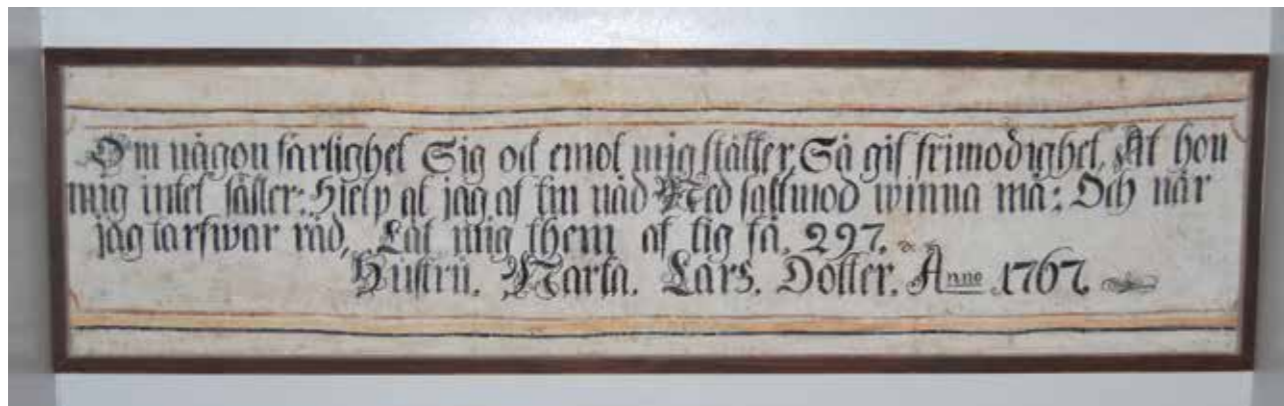 Om någon farlighet Sig od emot mig ställer, Så gif frimodighet, At hon
mig intet fäller: Hielp at jag af tin nåd Med saktmod winna må: Och när
jag tarfwar råd, Låt mig them af tig få. 297.
Hustru. Marta. Lars. Dotter. Anno 1767